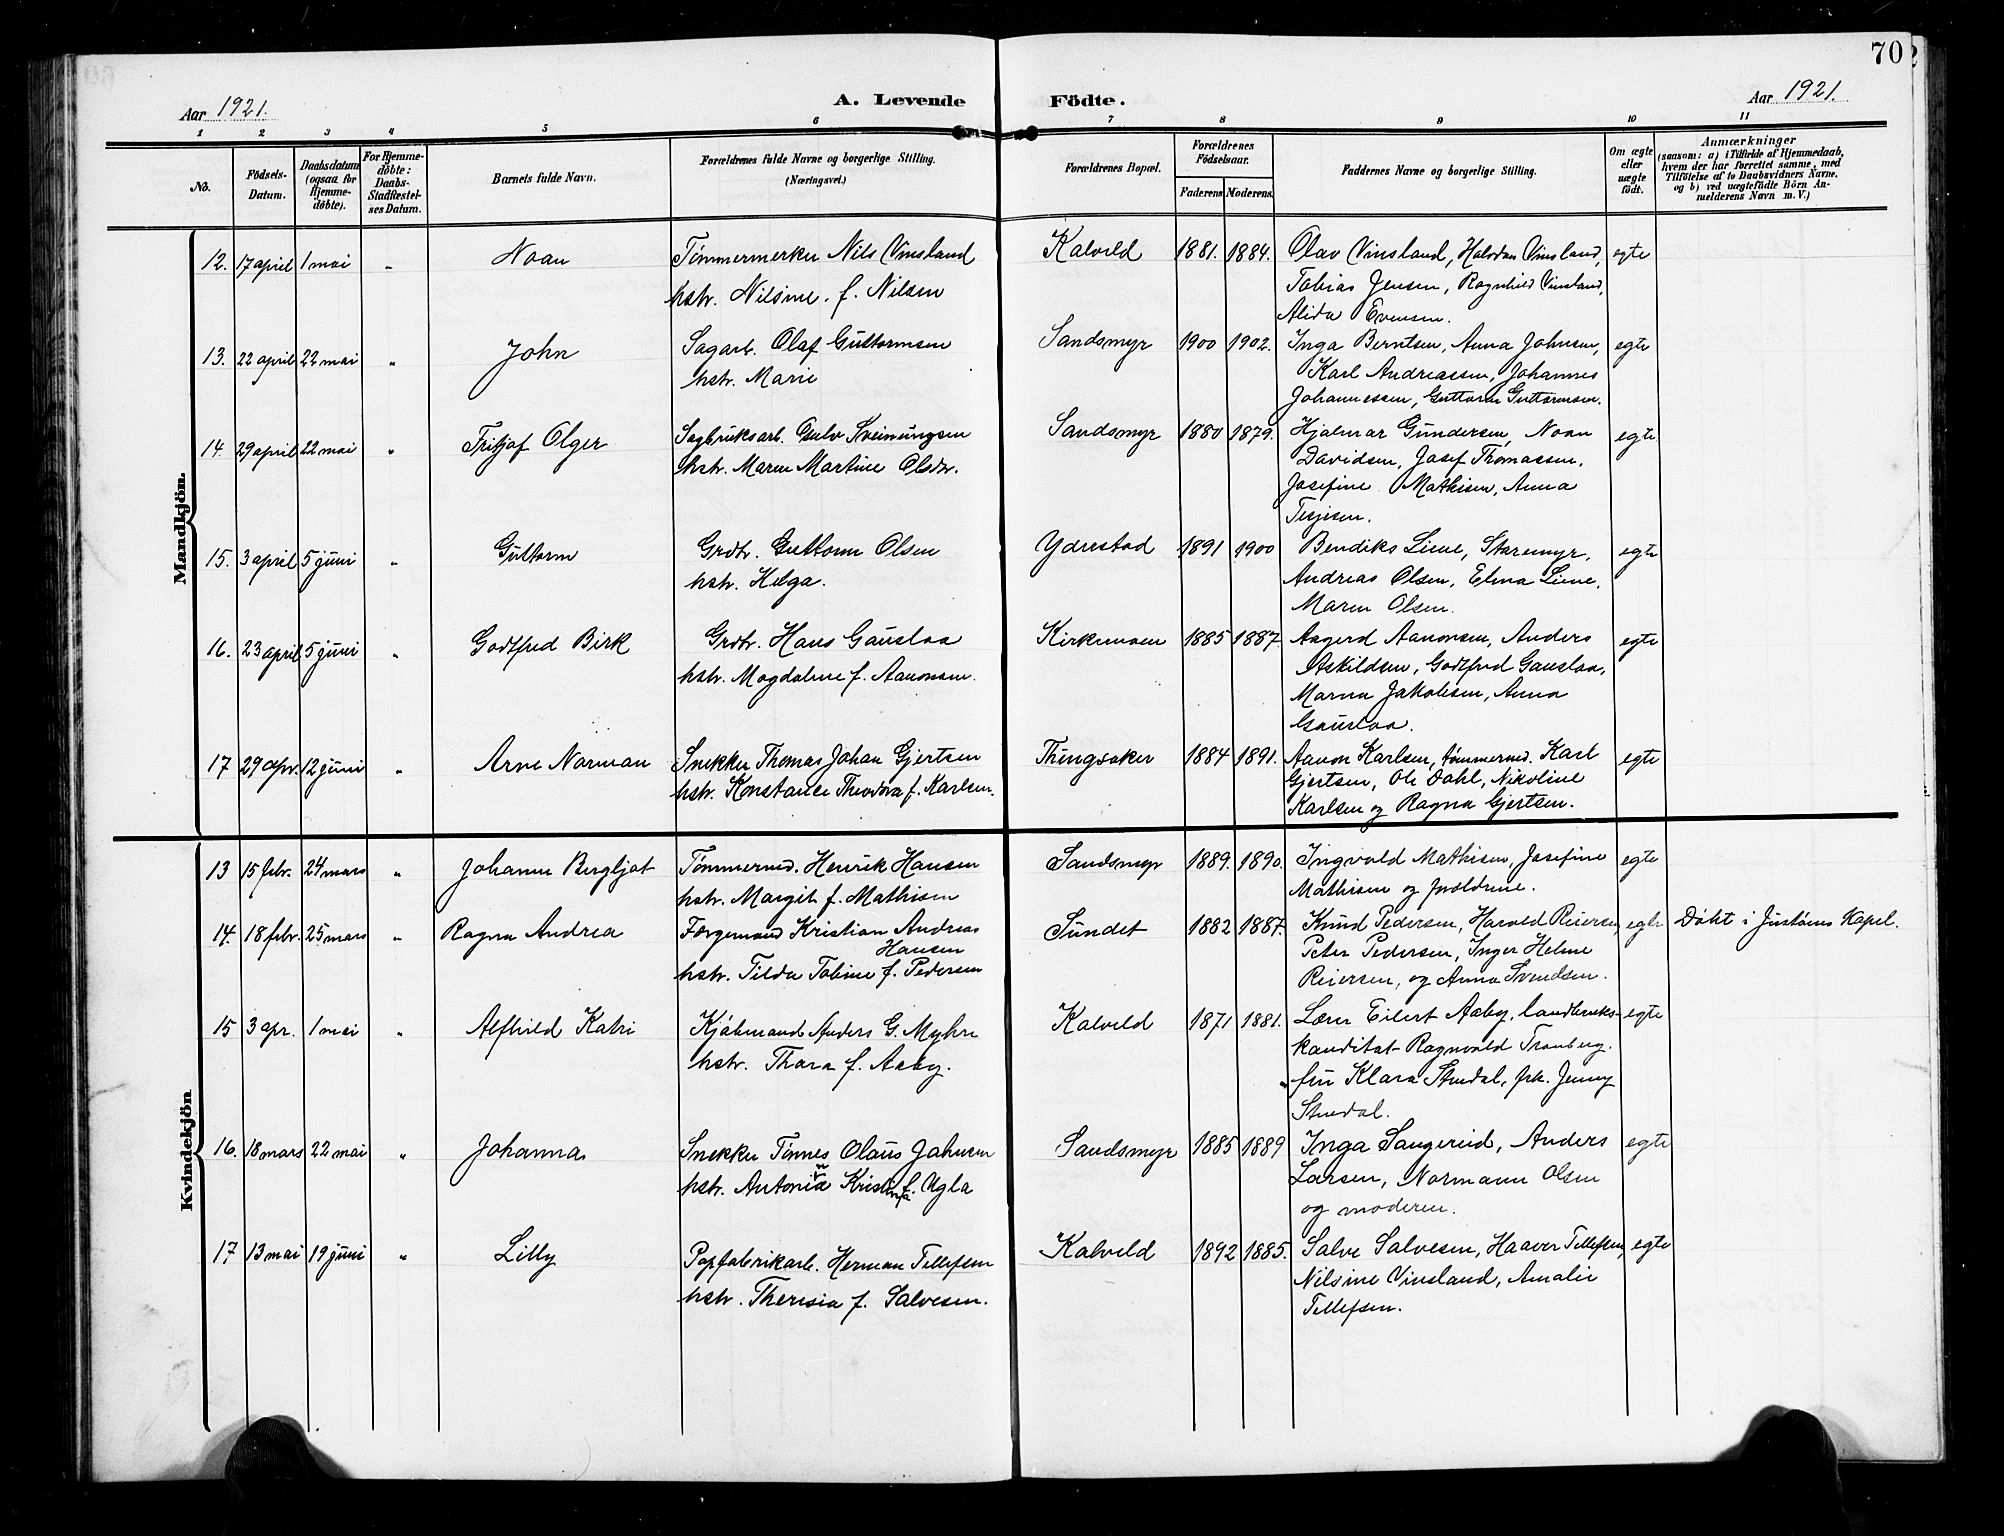 70
Aar 1921.
A. Levende Födte.
Aar 1921.
1 2 3 4 5 6 7 8 9 10 11
No.
Födsels-
Datum.
Daabsdatum
(ogsaa for
Hjemme-
döbte).
For Hjemme-
döbte:
Daabs-
Stadfæstel-
ses Datum.
Barnets fulde Navn.
Forældrenes fulde Navne og borgerlige Stilling.
(Næringsvei.)
Forældrenes Bopæl.
Forældrenes
Födselsaar.
Faderens Moderens.
Faddernes Navne og borgerlige Stilling.
Om ægte
eller
uægte
födt.
Anmærkninger
(saasom: a) i Tilfælde af Hjemmedaab,
hvem der har forrettet samme, med
Tilföielse af to Daabsvidners Navne.
og b) ved uægtefödte Börn An-
melderens Navn m. V.)
Mandkjön.
12. 17 april 1 mai " Noan Tömmermerker Nils Vinsland Kalveld 1881. 1884. Olav Vinsland, Halvdan Vinsland, egte
hstr. Nilsine. f. Nilsen Tobias Jensen, Ragnhild Vinsland,
Alida Evensen.
13. 22 april 22 mai " John Sagarb. Olaf Guttormsen Sandsmyr 1900 1902. Inga Berntsen, Anna Johnsen, egte
hstr. Marie Karl Andreassen, Johannes
Johannessen, Guttorm Guttormsen.
14. 29 april 22 mai " Fritjof Olger Sagbruksarb. Gulv Sveinungsen Sandsmyr 1880 1879. Hjalmar Gundersen, Noan egte
hstr. Maren Martine Olsdtr. Davidsen, Josef Thomassen,
Josefine Mathisen, Anna
Terjesen.
15. 3 april 5 juni " Guttorm Grdbr. Guttorm Olsen Ydrestad 1891 1900 Bendiks Liene, Staremyr, egte
hstr. Helga. Andreas Olsen, Elena Liene,
Maren Olsen.
16. 23 april 5 juni " Godtfred Birk Grdbr. Hans Gauslaa Kirkemoen 1885 1887. Aagerd Aanonsen, Anders egte
hstr. Magdalene f. Aanonsen. Askildsen, Godtfred Gauslaa,
Marna Jakobsen, Anna
Gauslaa.
17 29 apr. 12 juni " Arne Norman Snekker Thomas Johan Gjertsen Thingsaker 1884 1891. Aanon Karlsen, tømmermd. Karl egte
hstr. Konstance Theodora f. Karlsen. Gjertsen, Ole Dahl, Nikoline
Karlsen og Ragna Gjertsen.
Kvindekjön
13 15 febr. 24 mars " Johanne Bergljot Tømmermd. Henrik Hansen Sandsmyr 1889. 1890. Ingvald Mathisen, Josefine egte
hstr. Margit f. Mathisen Mathisen og foreldrene.
14. 18 febr. 25 mars " Ragna Andrea Færgemand Kristian Andreas Sundet 1882 1887. Knud Pedersen, Harald Reiersen, egte Døbt i Justøens Kapel.
Hansen Peter Pedersen, Inger Helene
hstr. Tilda Tobine f. Pedersen Reiersen, og Anna Svendsen.
15 3 apr. 1 mai " Alfhild Katri Kjøbmand Anders G. Myhre Kalveld 1871 1881. Lærer Eilert Aaby, landbruks- egte
hstr. Thora f. Aaby. kanditat Ragnvald Tranberg.
fru Klara Stuedal, frk. Jenny
Stuedal.
16. 18 mars 22 mai " Johanna Snekker Tønnes Olaus Jahnsen Sandsmyr 1885 1889 Inga Saugereid, Anders egte
hstr. Antonia Kristina f. Ugla Larsen, Normann Olsen
og moderen.
17 13 mai 19 juni " Lilly Papfabrikarb. Herman Tellefsen Kalveld 1892 1885. Salve Salvesen, Haaver Tellefsen, egte
hstr. Theresia f. Salvesen. Nilsine Vinsland, Amalie
Tellefsen.